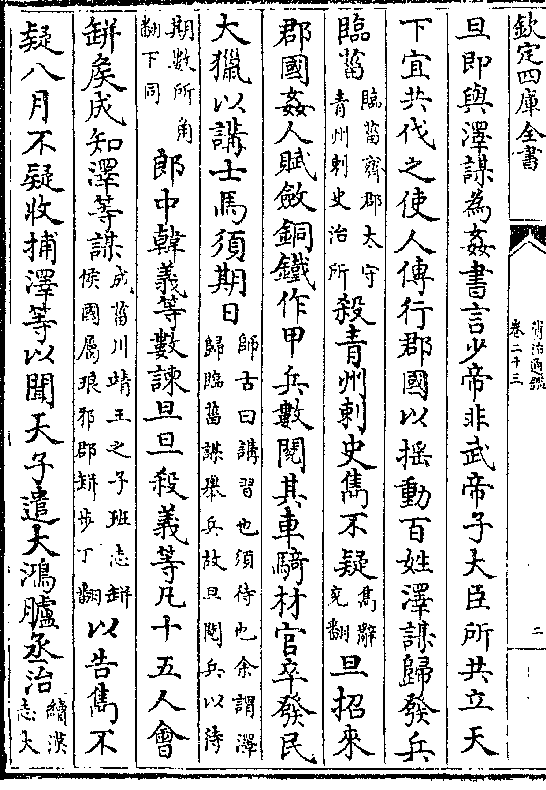 欽定四庫全書
資治通鑑
卷二十三
二
旦即與澤謀為姦書言少帝非武帝子大臣所共立天
下宜共伐之使人傳行郡國以揺動百姓澤謀歸發兵
臨菑臨菑齊郡太守青州刺史治所殺青州刺史雋不疑雋辭兖翻旦招來
郡國姦人賦斂銅鐵作甲兵數閲其車騎材官卒發民
大獵以講士馬須期日師古曰講習也須待也余謂澤歸臨菑謀舉兵故旦閲兵以待
期數所角翻下同郎中韓義等數諫旦旦殺義等凡十五人會
缾矦成知澤等謀成菑川靖王之子班志缾侯國屬琅邪郡缾步丁翻以告雋不
疑八月不疑收捕澤等以聞天子遣大鴻臚丞治續漢志大